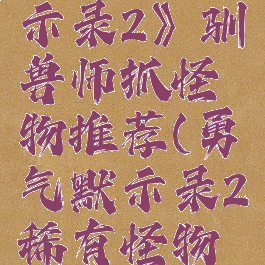 示录2》驯
兽师抓怪
物推荐(勇
气默示录2
稀有怪物